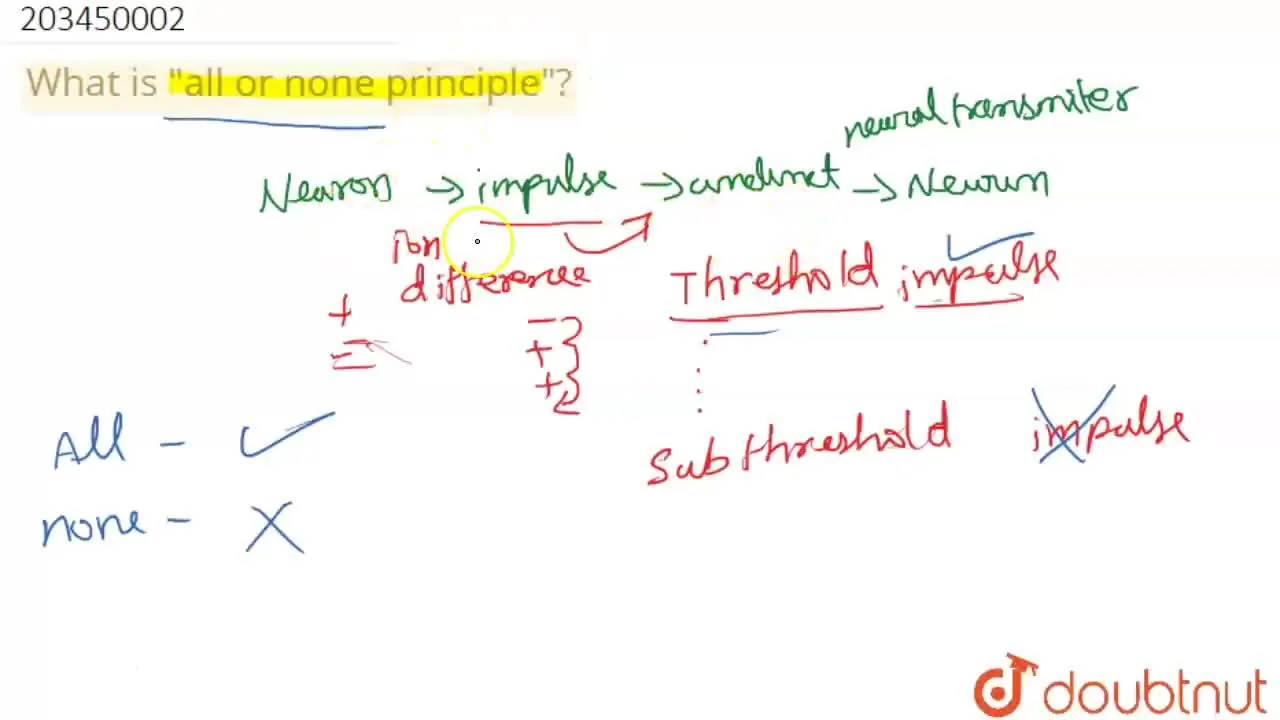 203450002
What is "all or none principle"?
neural transmiter
Neuron → impulse → → Neuron
ion
difference
Threshold impulse
+
-
-
+
+
All -
Subthreshold impulse
none -
doubtnut